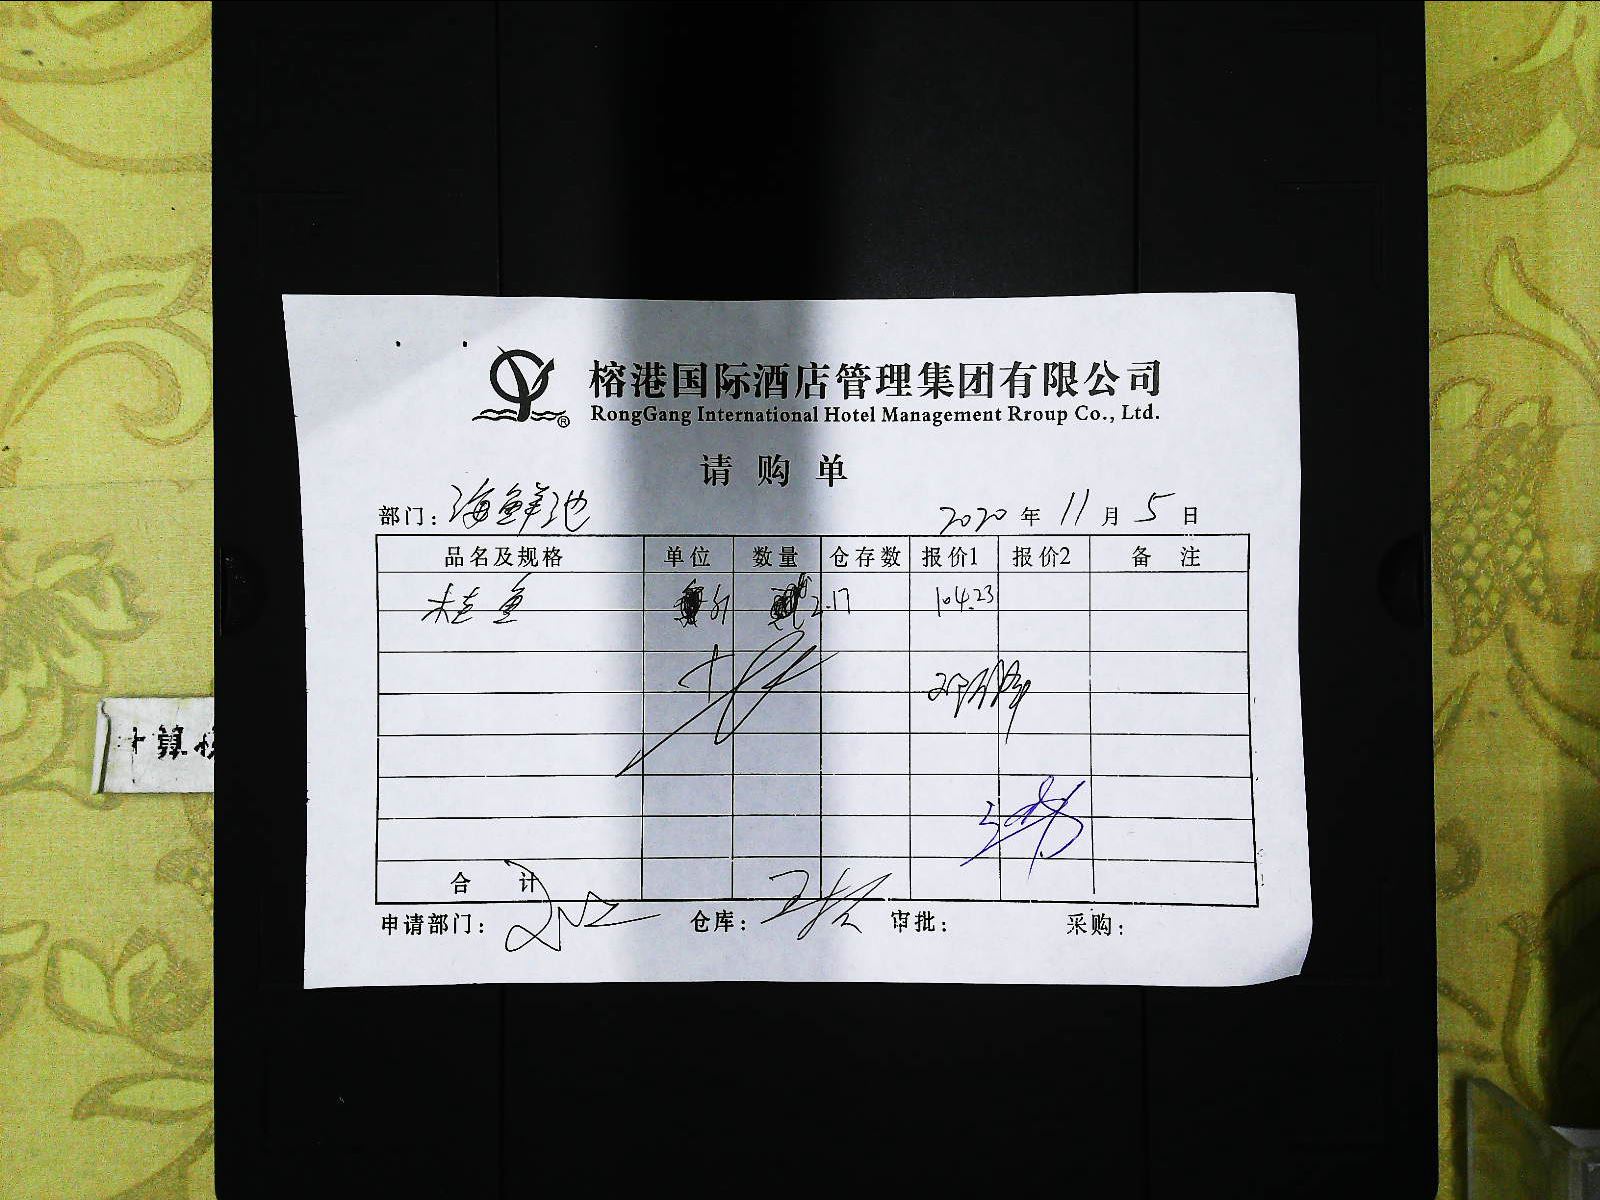 榕港国际酒店管理集团有限公司
RongGang International Hotel Management Rroup Co., Ltd.
®
请购单
部门: 海鲜池 2020 年 11 月 5 日
品名及规格 单位 数量 仓存数 报价1 报价2 备注
桂鱼 斤 2.17 104.23
计算
合计
申请部门: 仓库: 审批: 采购: